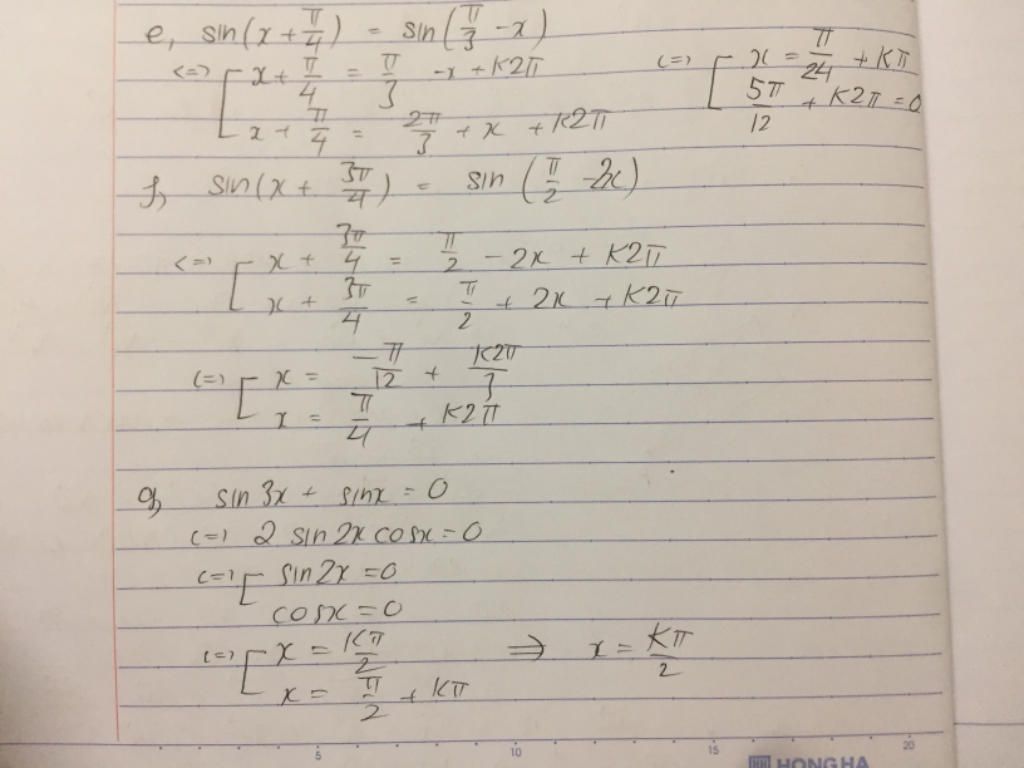 e, sin(x + π/4) = sin(π/3 - x)
<=> [ x + π/4 = π/3 - x + K2π
x + π/4 = 2π/3 + x + K2π
<=> [ x = π/24 + Kπ
5π/12 + K2π = 0
f, sin(x + 3π/4) = sin (π/2 - 2x)
<=> [ x + 3π/4 = π/2 - 2x + K2π
x + 3π/4 = π/2 + 2x + K2π
<=> [ x = -π/12 + K2π/3
x = π/4 + K2π
g, sin 3x + sinx = 0
<=> 2 sin 2x cosx = 0
<=> [ sin 2x = 0
cosx = 0
<=> [ x = Kπ/2 => x = Kπ/2
x = π/2 + Kπ
5 10 15 20
HONG HA